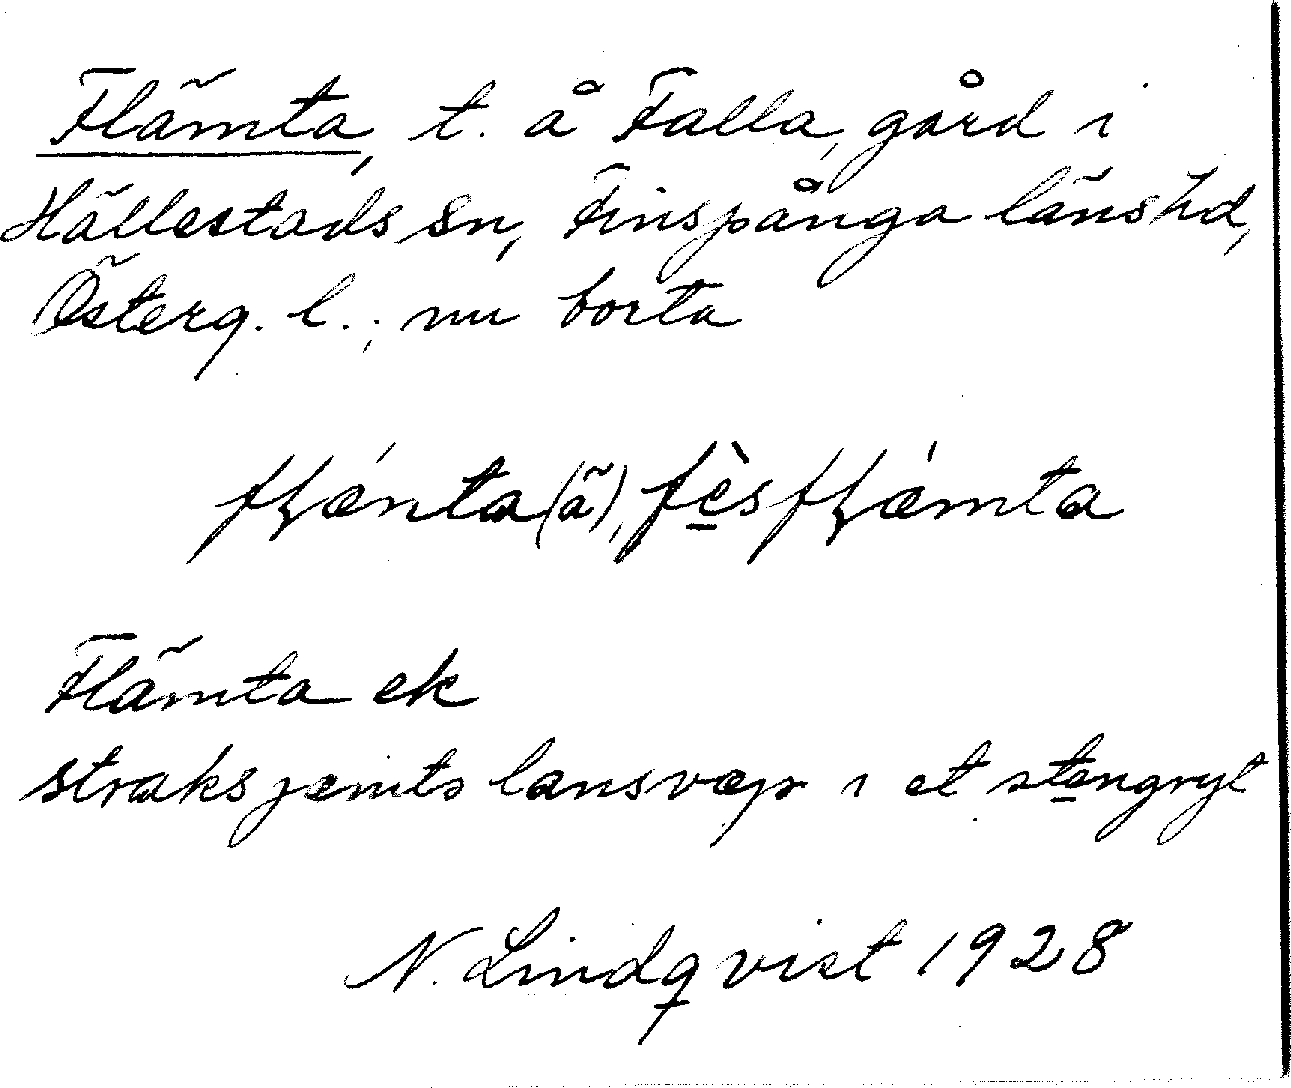 Flämta, t. å Falla, gård i
Hällestads sn, Finspånga läns hd,
Österg. l.; nu borta
Flämta ek
straks jæmts lansvæp i et stengryt
N. Lindqvist 1928